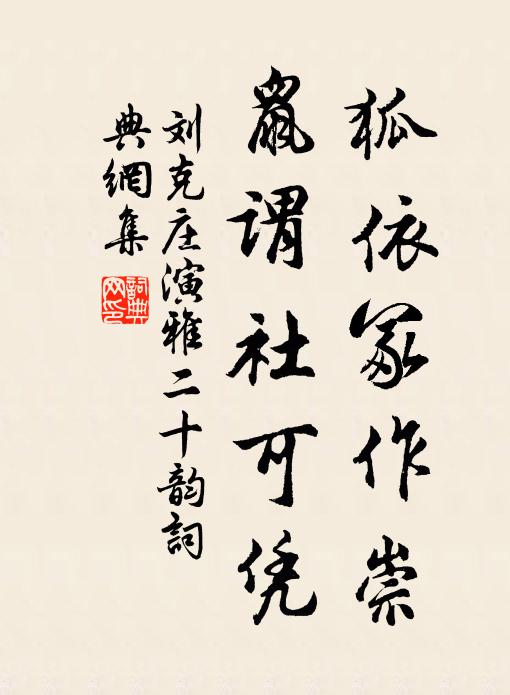 狐依冢作祟
鼠谓社可凭
刘克庄演雅二十韵詞
典網集
詞典
网印